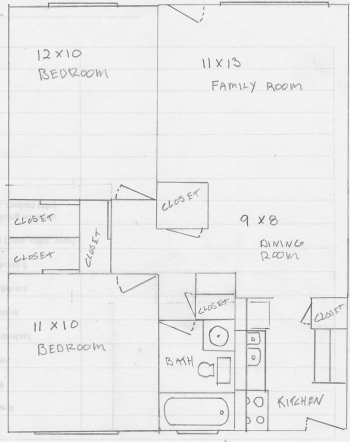 12 X 10
BEDROOM
11 X 13
FAMILY ROOM
CLOSET
CLOSET
CLOSET
CLOSET
9 X 8
DINING
ROOM
CLOSET
CLOSET
11 X 10
BEDROOM
BATH
KITCHEN